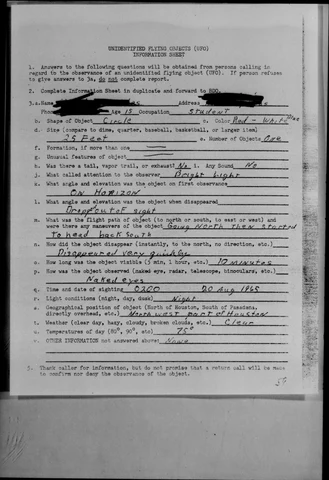 UNIDENTIFIED FLYING OBJECTS (UFO)
INFORMATION SHEET
1. Answers to the following questions will be obtained from persons calling in
regard to the observance of an unidentified flying object (UFO). If person refuses
to give answers to 3a, do not complete report.
2. Complete Information Sheet in duplicate and forward to
3.a. Name Address
Phone Age 15 Occupation Student
b. Shape of Object Circle c. Color Red - White
d. Size (compare to dime, quarter, baseball, basketball, or larger item)
25 Feet e. Number of Objects One
f. Formation, if more than one
g. Unusual features of object
h. Was there a tail, vapor trail, or exhaust No i. Any Sound No
j. What called attention to the observer Bright Light
k. What angle and elevation was the object on first observance
On Horizon
l. What angle and elevation was the object when disappeared
Drop out of sight
m. What was the flight path of object (to north or south, to east or west) and
were there any maneuvers of the object Going North Then started
To head back South
n. How did the object disappear (instantly, to the north, no direction, etc.)
Disappeared very quickly
o. How long was the object visible (5 min, 1 hour, etc.) 10 minutes
p. How was the object observed (naked eye, radar, telescope, binoculars, etc.)
Naked eyes
q. Time and date of sighting 0200 20 Aug 1965
r. Light conditions (night, day, dusk) Night
s. Geographical position of object (North of Houston, South of Pasadena,
directly overhead, etc.) North west part of Houston
t. Weather (clear day, hazy, cloudy, broken clouds, etc.) Clear
u. Temperatures of day (80°, 90°, etc) 75°
v. OTHER INFORMATION not answered above: None
5. Thank caller for information, but do not promise that a return call will be made
to confirm nor deny the observance of the object.